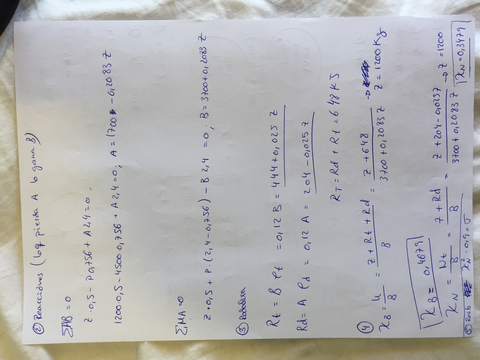 ② Reacciones (loq pierde A lo gana B)
ΣMB = 0
Z·0,5 - P·0,756 + A·2,4 = 0 ;
1200·0,5 - 4500·0,756 + A·2,4 = 0 ; A = 1700 - 0,2083 Z
ΣMA = 0
Z·0,5 + P·(2,4 - 0,756) - B·2,4 = 0 ; B = 3700 + 0,2083 Z
③ Rodadura
Rt = B ρt = 0,12 B = 444 + 0,025 Z
Rd = A ρd = 0,12 A = 204 - 0,025 Z
RT = Rd + Rt = 648 KS
④
XB = U/B = (Z + Rt + Rd)/B = (Z + 648)/(3700 + 0,2083 Z) → Z = 1200 Kg
XB = 0,4679
XN = Nt/B = (Z + Rd)/B = (Z + 204 - 0,0257)/(3700 + 0,2083 Z) → Z = 1200
XN = 0,3479